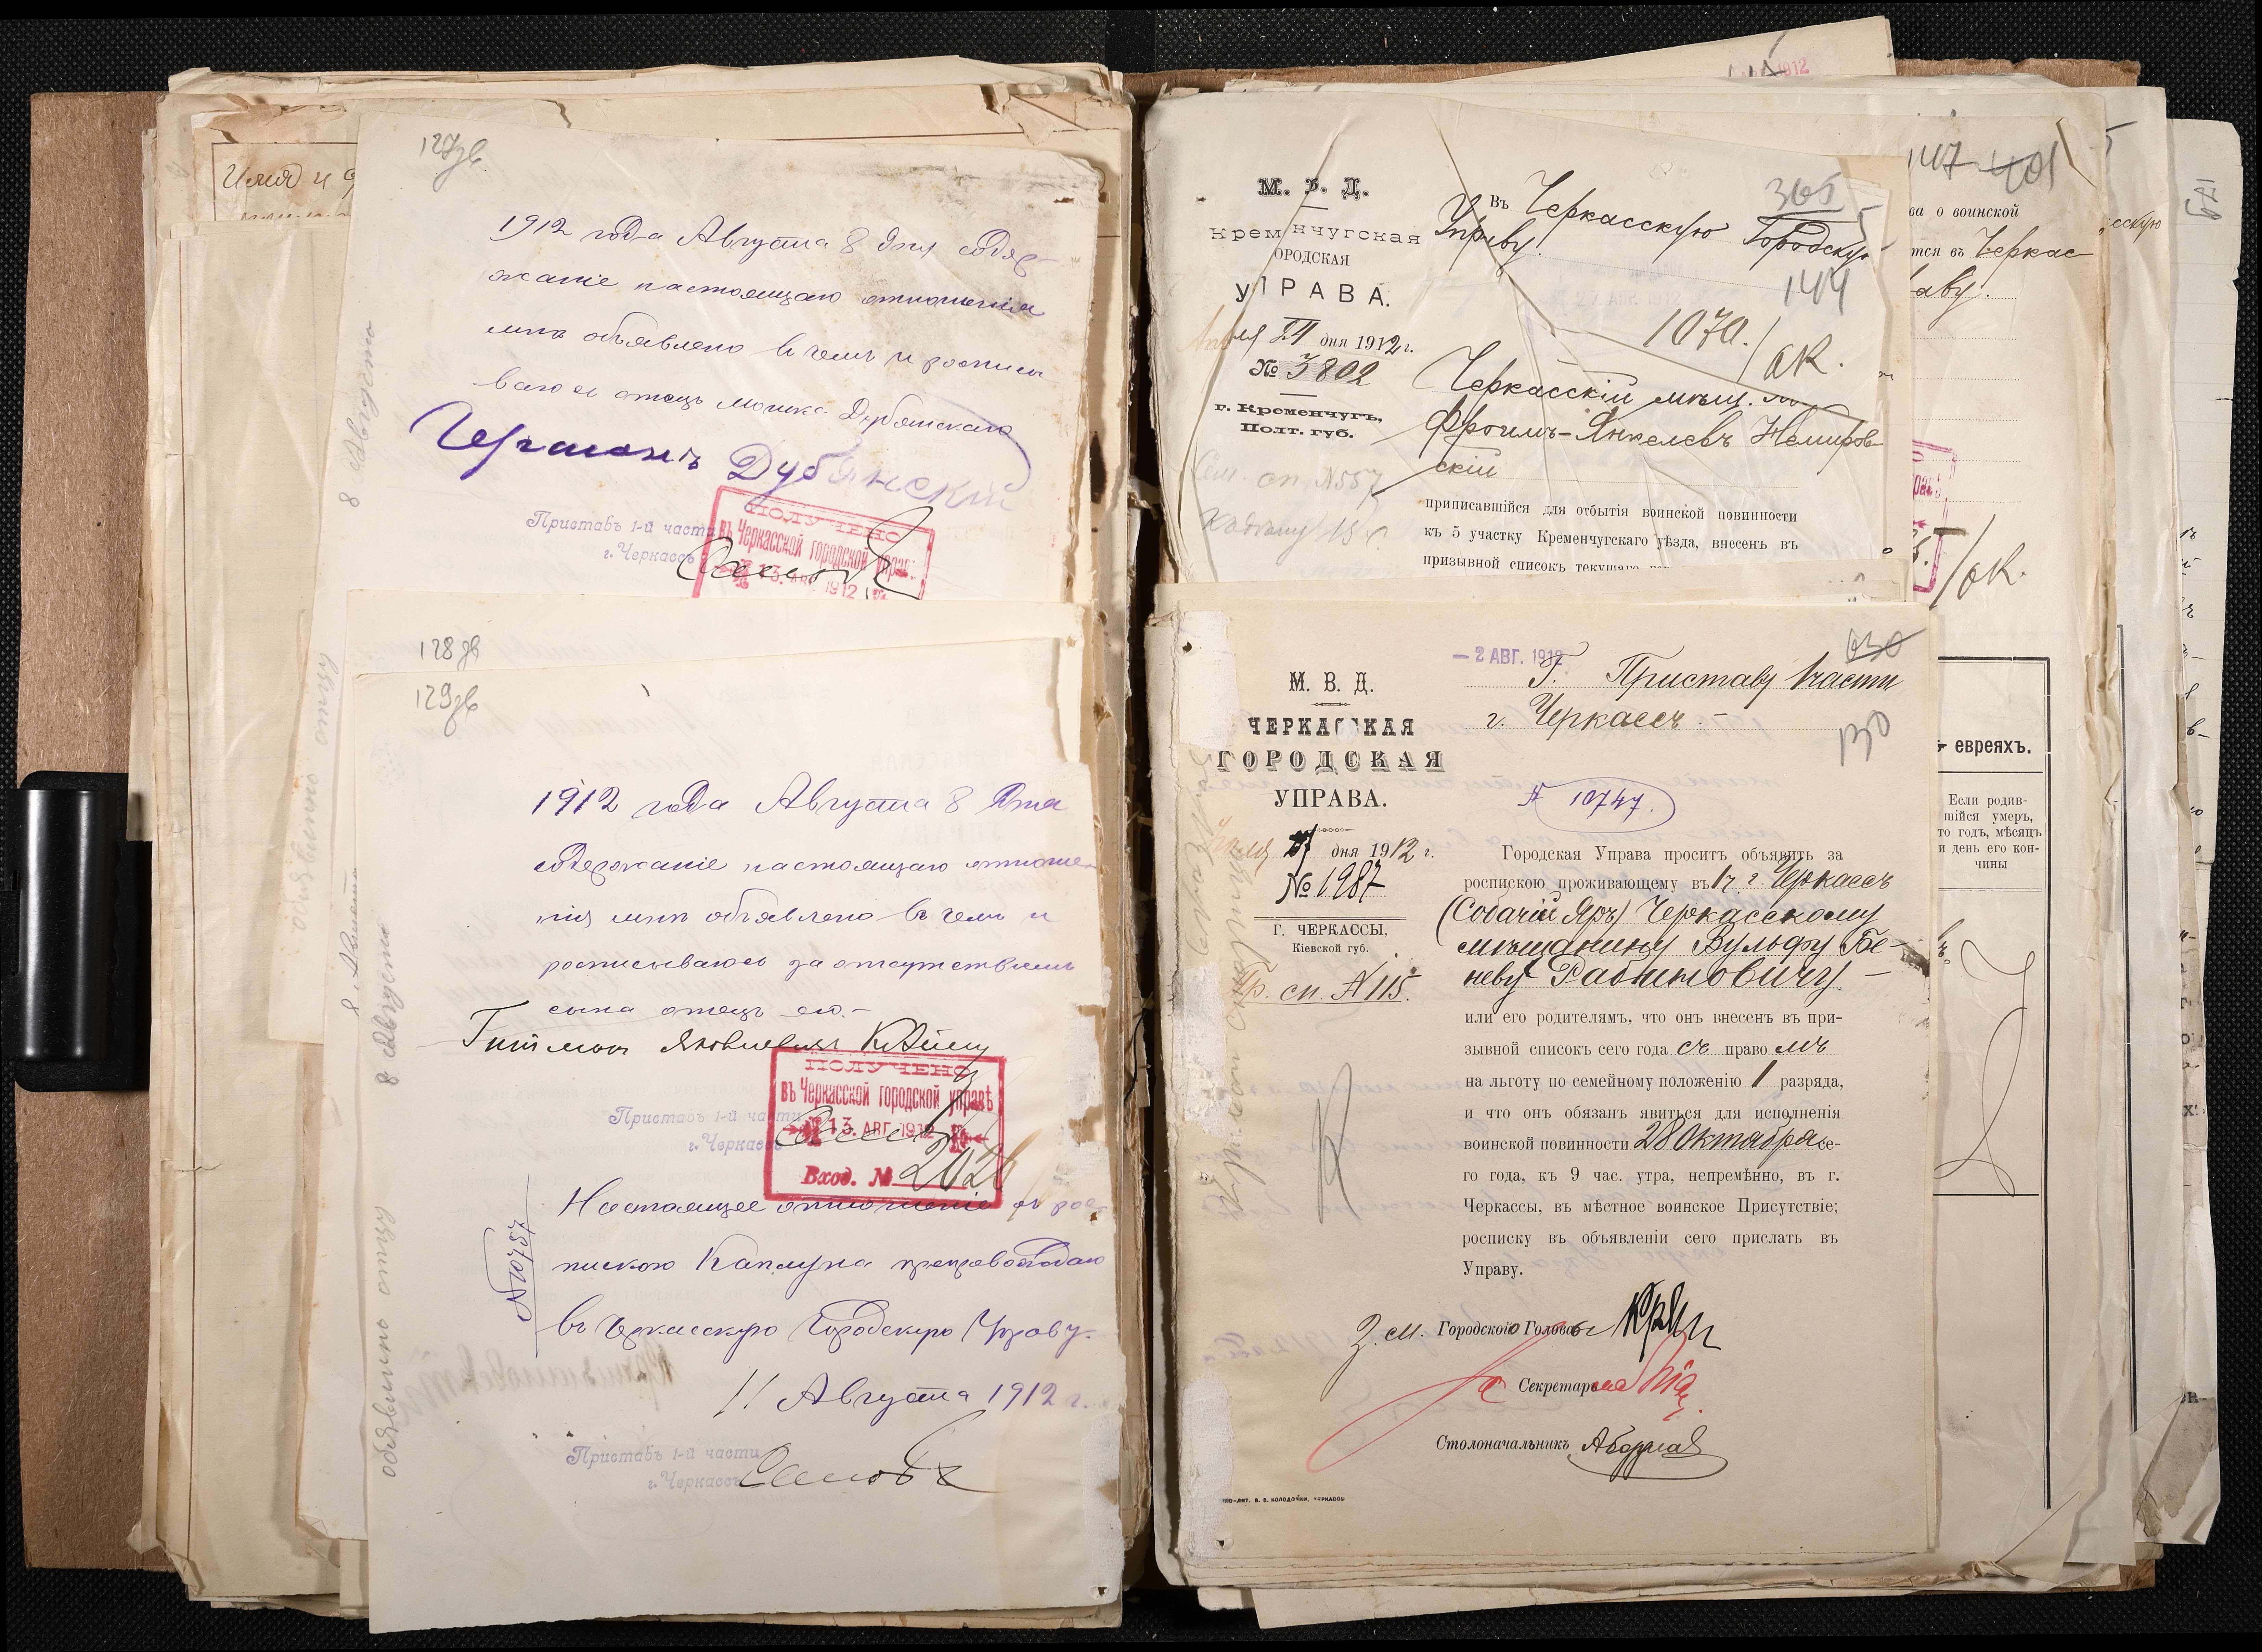 Имя и
127зв
1912 года Августа 8 дня содер-
жаніе настоящаго отношенія
мнѣ объявлено в чемъ и росписы
ваюсь отецъ Мошка Дубянскаго
Германъ Дубянскій
Приставъ 1-й части
г. Черкассъ
ПОЛУЧЕНО
въ Черкасской городской управѣ
13. АВГ. 1912
8 Августа
128зв
129зв
1912 года Августа 8 дня
содержаніе настоящаго отноше-
нія мнѣ объявлено въ чемъ и
росписываюсь за отсутствіемъ
сына отецъ его.-
Яковлевич
ПОЛУЧЕНО
въ Черкасской городской управѣ
13. АВГ. 1912
Вход. № 2026
Приставъ 1-й части
г. Черкассъ
Настоящее отношеніе съ рос-
пискою Каплуна препровождаю
въ Черкасскую Городскую Управу.
11 Августа 1912 г.
№10757
Приставъ 1-й части
г. Черкассъ
8 Августа
объявлено отцу
1912
М. В. Д.
Кременчугская
ГОРОДСКАЯ
УПРАВА.
дня 1912 г.
№ 3802
г. Кременчугъ,
Полт. губ.
Сем. сп. №557
365
Въ Черкасскую Городскую
Управу.
144
1070.
ОК.
Черкасскій мѣщ.
Фроимъ-Янкелевъ Немиров-
скій
приписавшійся для отбытія воинской повинности
къ 5 участку Кременчугскаго уѣзда, внесенъ въ
призывной списокъ текущаго
147 401
ва о воинской
тся въ Черкас-
аву.
ОК.
129
- 2 АВГ. 1912
Г. Приставу 1 части
г. Черкассъ.-
130
М. В. Д.
ЧЕРКАССКАЯ
ГОРОДСКАЯ
УПРАВА.
дня 1912 г.
№ 1987
Г. ЧЕРКАССЫ,
Кіевской губ.
Пр. сп. №115.
№ 10747.
Городская Управа проситъ объявить за
роспискою проживающему въ г. Черкассъ
(Собачій Яръ) Черкасскому
мѣщанину Вульфу Бе-
неву Рабиновичу -
или его родителямъ, что онъ внесенъ въ при-
зывной списокъ сего года съ правомъ
на льготу по семейному положенію 1 разряда,
и что онъ обязанъ явиться для исполненія
воинской повинности 28 Октября се-
го года, къ 9 час. утра, непремѣнно, въ г.
Черкассы, въ мѣстное воинское Присутствіе;
росписку въ объявленіи сего прислать въ
Управу.
З. м. Городского Головы
Секретаря
Столоначальникъ
евреяхъ.
Если родив-
шійся умеръ,
то годъ, мѣсяцъ
и день его кон-
чины